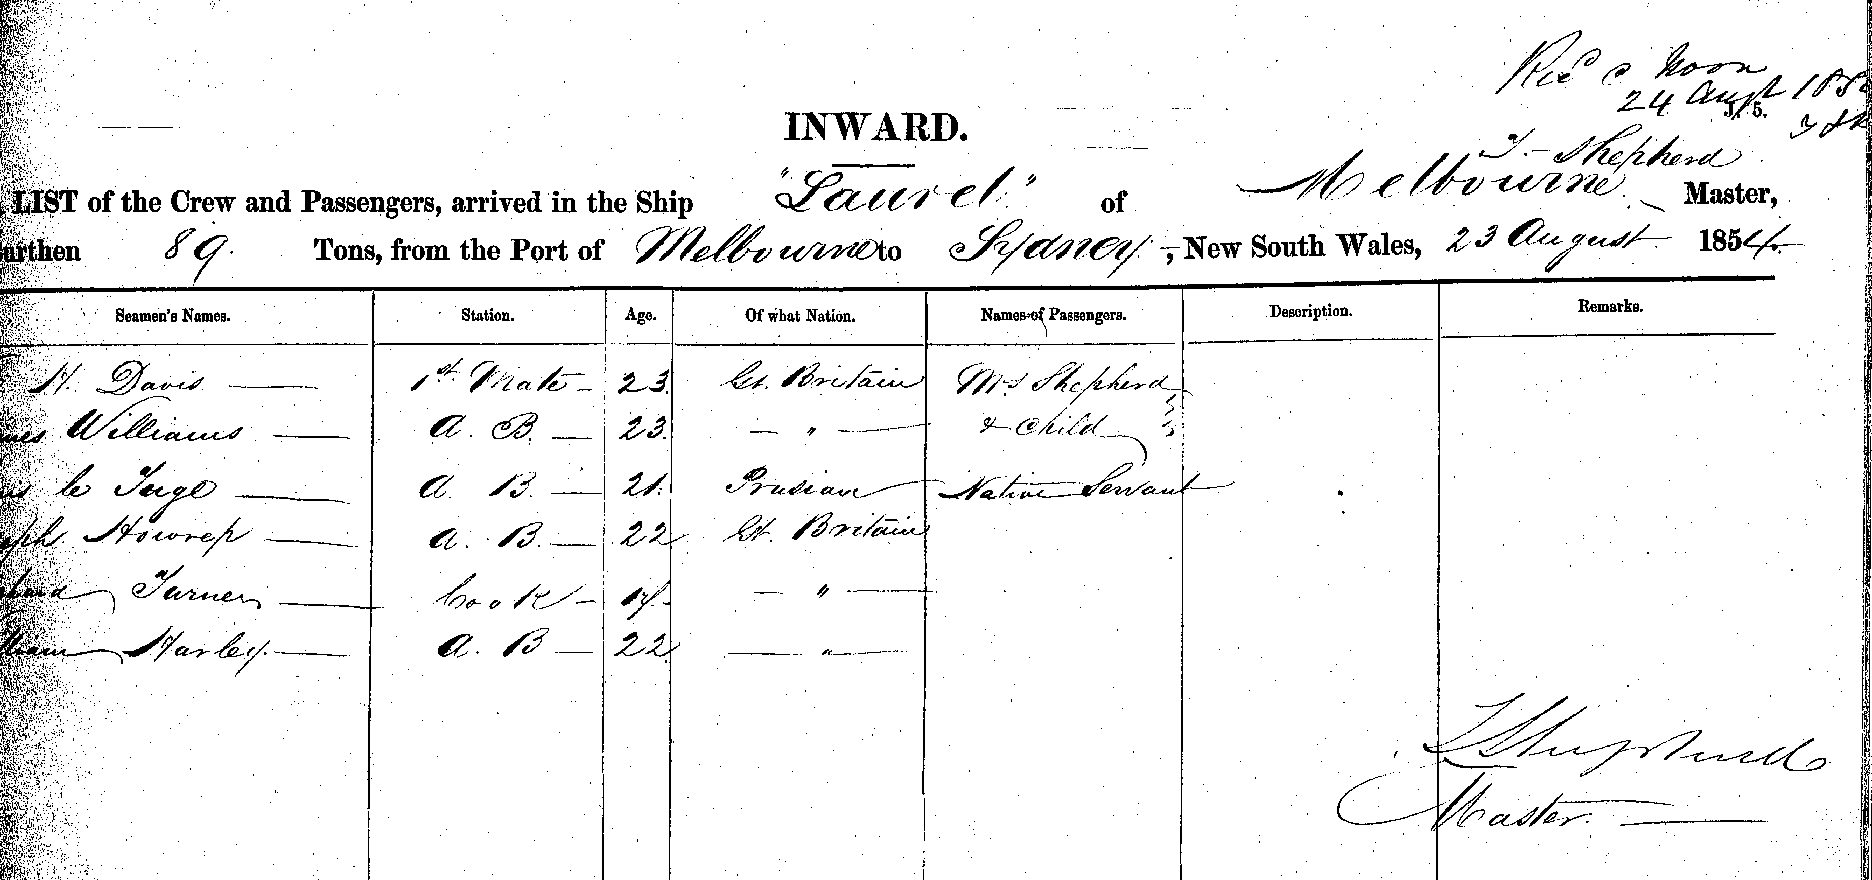 Recd @ Noon
24 Augst 185
INWARD.
T. Shepherd
LIST of the Crew and Passengers, arrived in the Ship "Laurel" of Melbourne Master,
urthen 89. Tons, from the Port of Melbourne to Sydney, New South Wales, 23 August 1854.
Seamen's Names. Station. Age. Of what Nation. Names of Passengers. Description. Remarks.
H. Davis — 1st Mate — 23 Gt. Britain Mrs Shepherd
mes Williams — A. B. — 23. — " — & Child
le — A. B. — 21. Prusian Native Servant
eph — A. B. — 22 Gt. Britain
Turner — Cook — — " —
lliam Harley. — A. B — 22 — " —
Shepherd
Master. —